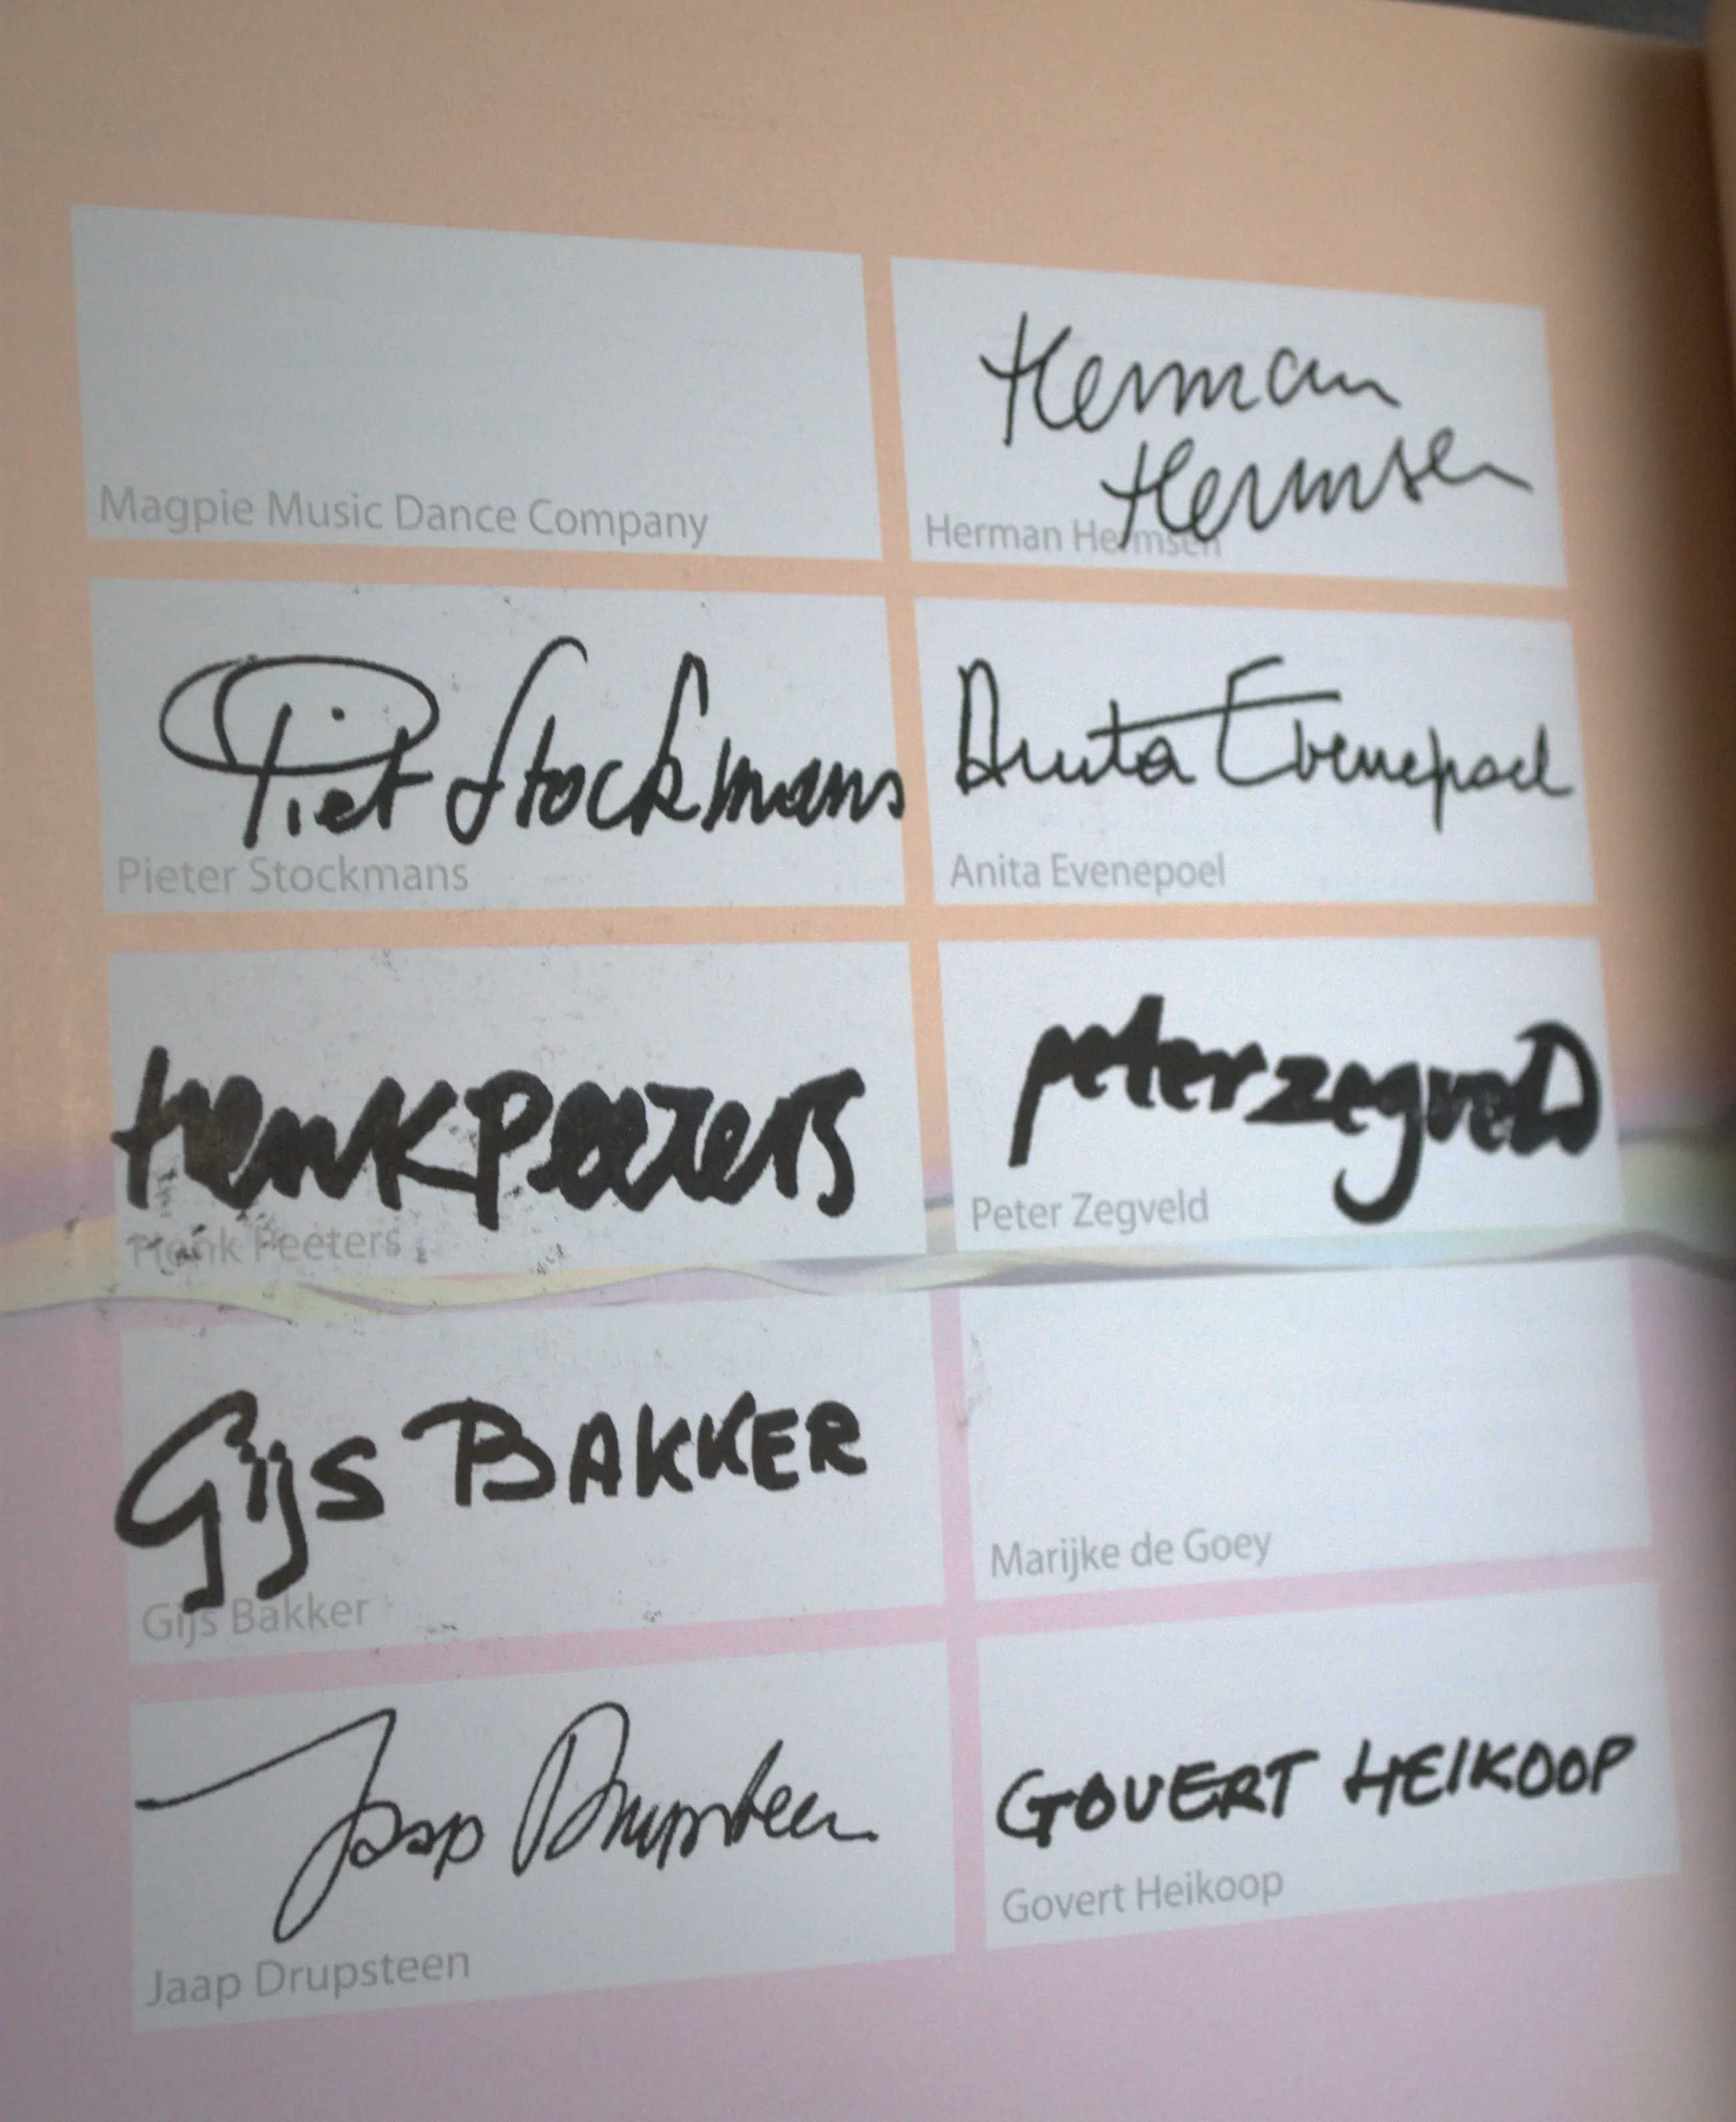 Magpie Music Dance Company
Herman
Hermsen
Herman Hermsen
Piet Stockmans
Pieter Stockmans
Anita Evenepoel
Anita Evenepoel
henk peeters
Henk Peeters
peter zegvelD
Peter Zegveld
Gijs BAKKER
Gijs Bakker
Marijke de Goey
Jaap Drupsteen
Jaap Drupsteen
GOVERT HEIKOOP
Govert Heikoop